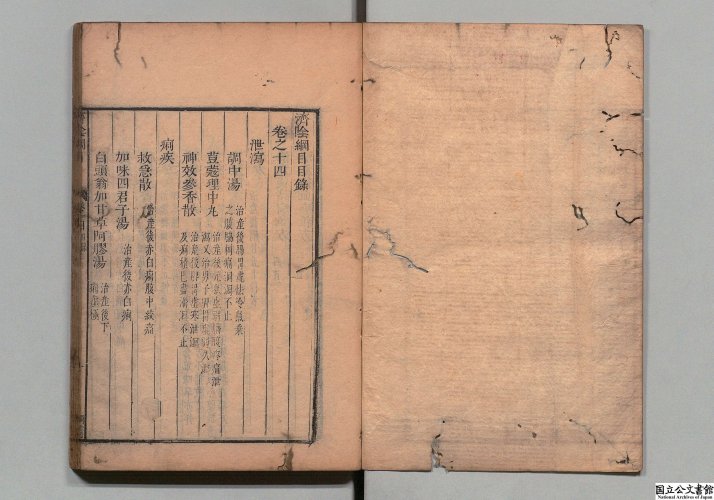 濟陰綱目目錄
卷之十四
泄瀉
調中湯 治產後腸胃虛怯冷氣乘之腹脇刺痛洞瀉不止
荳蔻理中丸 治產後元氣虛弱臍腹疼痛泄瀉又治男子脾胃虛弱久泄
神效參香散 治產後脾胃虛寒泄瀉及痢積已盡滑溜不止
痢疾
救急散 治產後赤白痢腹中絞痛
加味四君子湯 治產後赤白痢
白頭翁加甘草阿膠湯 治產後下痢虛極
国立公文書館
National Archives of Japan